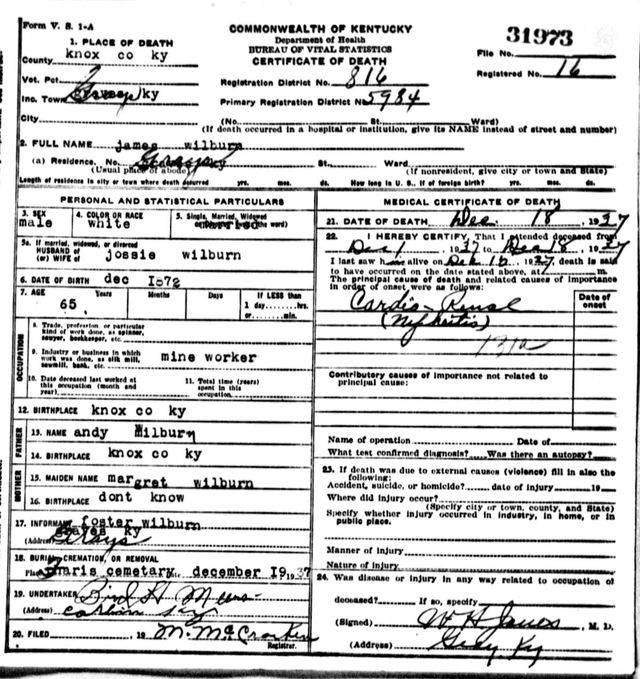 Form V. S. 1-A
COMMONWEALTH OF KENTUCKY
Department of Health
BUREAU OF VITAL STATISTICS
CERTIFICATE OF DEATH
31973
File No.
Registered No. 16
1. PLACE OF DEATH
County knox co ky
Vot. Pct.
Inc. Town ky
City
Registration District No. 816
Primary Registration District No. 5984
(No. St. Ward)
(If death occurred in a hospital or institution, give its NAME instead of street and number)
2. FULL NAME james wilburn
(a) Residence. No. St. Ward
(Usual place of abode) (If nonresident, give city or town and State)
Length of residence in city or town where death occurred yrs. mos. ds. How long in U. S., if of foreign birth? yrs. mos. ds.
PERSONAL AND STATISTICAL PARTICULARS
3. SEX male
4. COLOR OR RACE white
5. Single, Married, Widowed
(the word)
5a. If married, widowed, or divorced
HUSBAND of
(or) WIFE of jossie wilburn
6. DATE OF BIRTH dec 1872
7. AGE 65 Years Months Days If LESS than
1 day......hrs.
or......min.
OCCUPATION
8. Trade, profession, or particular
kind of work done, as spinner,
sawyer, bookkeeper, etc.
9. Industry or business in which
work was done, as silk mill,
sawmill, bank, etc. mine worker
10. Date deceased last worked at
this occupation (month and
year)
11. Total time (years)
spent in this
occupation
12. BIRTHPLACE knox co ky
FATHER
13. NAME andy wilburn
14. BIRTHPLACE knox co ky
MOTHER
15. MAIDEN NAME margret wilburn
16. BIRTHPLACE dont know
17. INFORMANT foster wilburn
(Address) ky
18. BURIAL, CREMATION, OR REMOVAL
Place cemetary Date december 19 1937
19. UNDERTAKER
(Address) ky
20. FILED 19 M. McCracken
Registrar.
MEDICAL CERTIFICATE OF DEATH
21. DATE OF DEATH Dec. 18, 1937
22. I HEREBY CERTIFY, That I attended deceased from
Dec 1, 1937 to Dec 18, 1937
I last saw him alive on Dec 16, 1937, death is said
to have occurred on the date stated above, at m.
The principal cause of death and related causes of importance
in order of onset were as follows:
Date of
onset
Cardio-Renal
(Nephritis)
Contributory causes of importance not related to
principal cause:
Name of operation Date of
What test confirmed diagnosis? Was there an autopsy?
23. If death was due to external causes (violence) fill in also the
following:
Accident, suicide, or homicide? date of injury 19
Where did injury occur?
(Specify city or town, county, and State)
Specify whether injury occurred in industry, in home, or in
public place.
Manner of injury
Nature of injury
24. Was disease or injury in any way related to occupation of
deceased? If so, specify
(Signed) W H Jones, M. D.
(Address) Gray, Ky